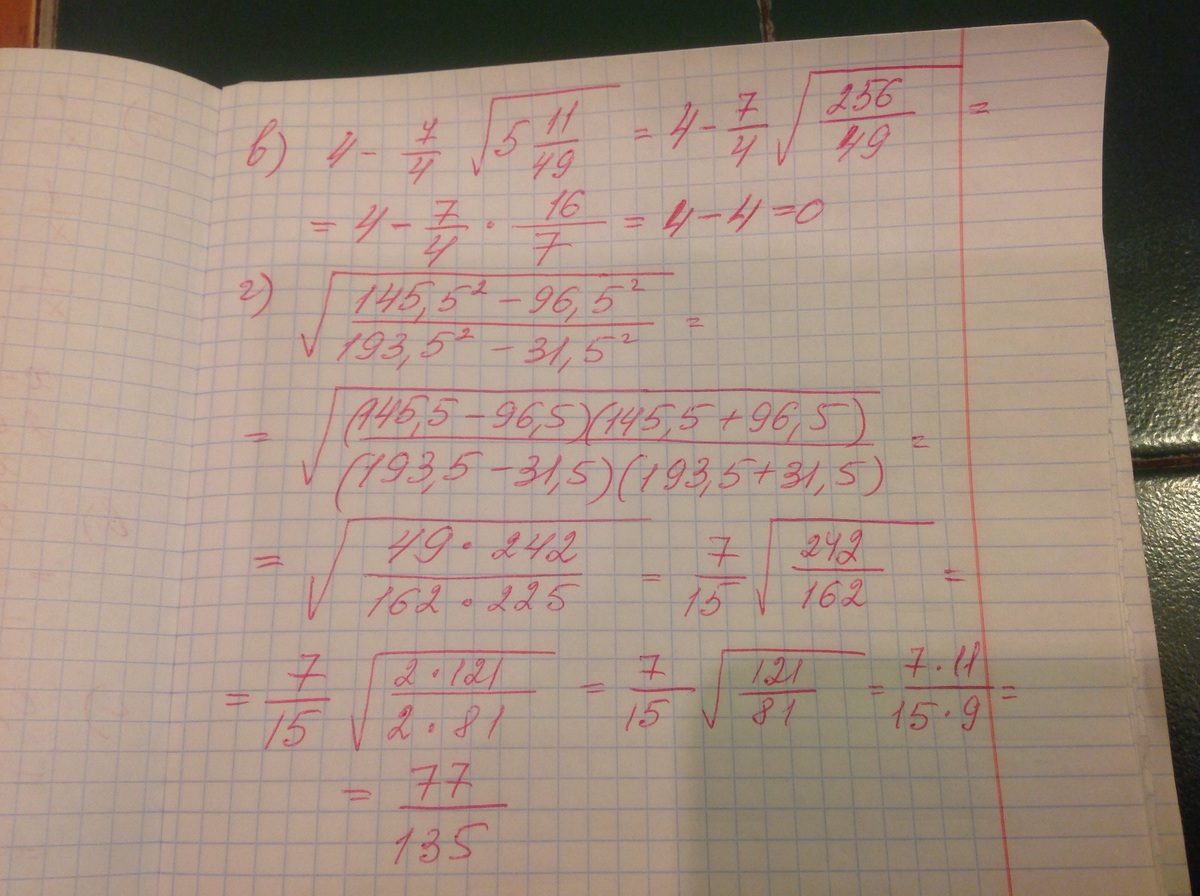 в) 4 - 7/4 √(5 11/49) = 4 - 7/4 √(256/49) =
= 4 - 7/4 · 16/7 = 4 - 4 = 0
г) √((145,5² - 96,5²)/(193,5² - 31,5²)) =
= √((145,5 - 96,5)(145,5 + 96,5)/(193,5 - 31,5)(193,5 + 31,5)) =
= √(49 · 242/162 · 225) = 7/15 √(242/162) =
= 7/15 √(2 · 121/2 · 81) = 7/15 √(121/81) = 7 · 11/15 · 9 =
= 77/135